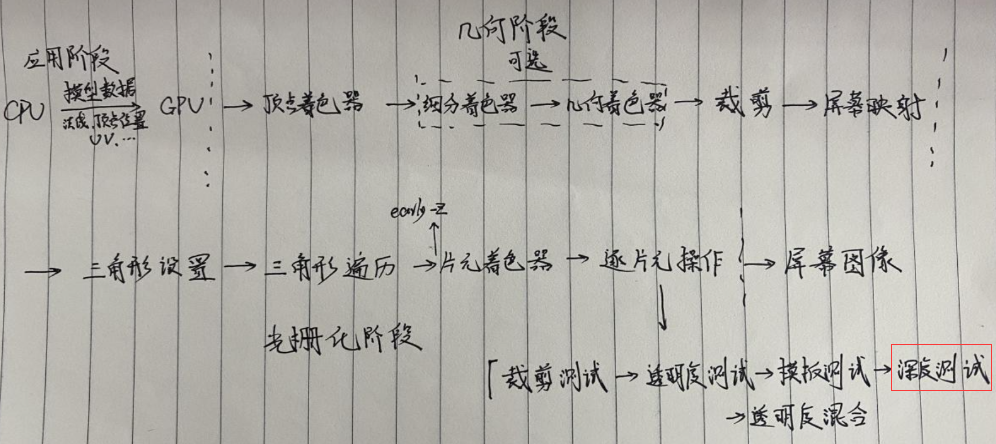 几何阶段
应用阶段
可选
CPU 模型数据 → GPU → 顶点着色器 → 细分着色器 → 几何着色器 → 裁剪 → 屏幕映射
法线、顶点位置
UV、...
early-z
→ 三角形设置 → 三角形遍历 → 片元着色器 → 逐片元操作 → 屏幕图像
光栅化阶段
裁剪测试 → 透明度测试 → 模板测试 → 深度测试
→ 透明度混合